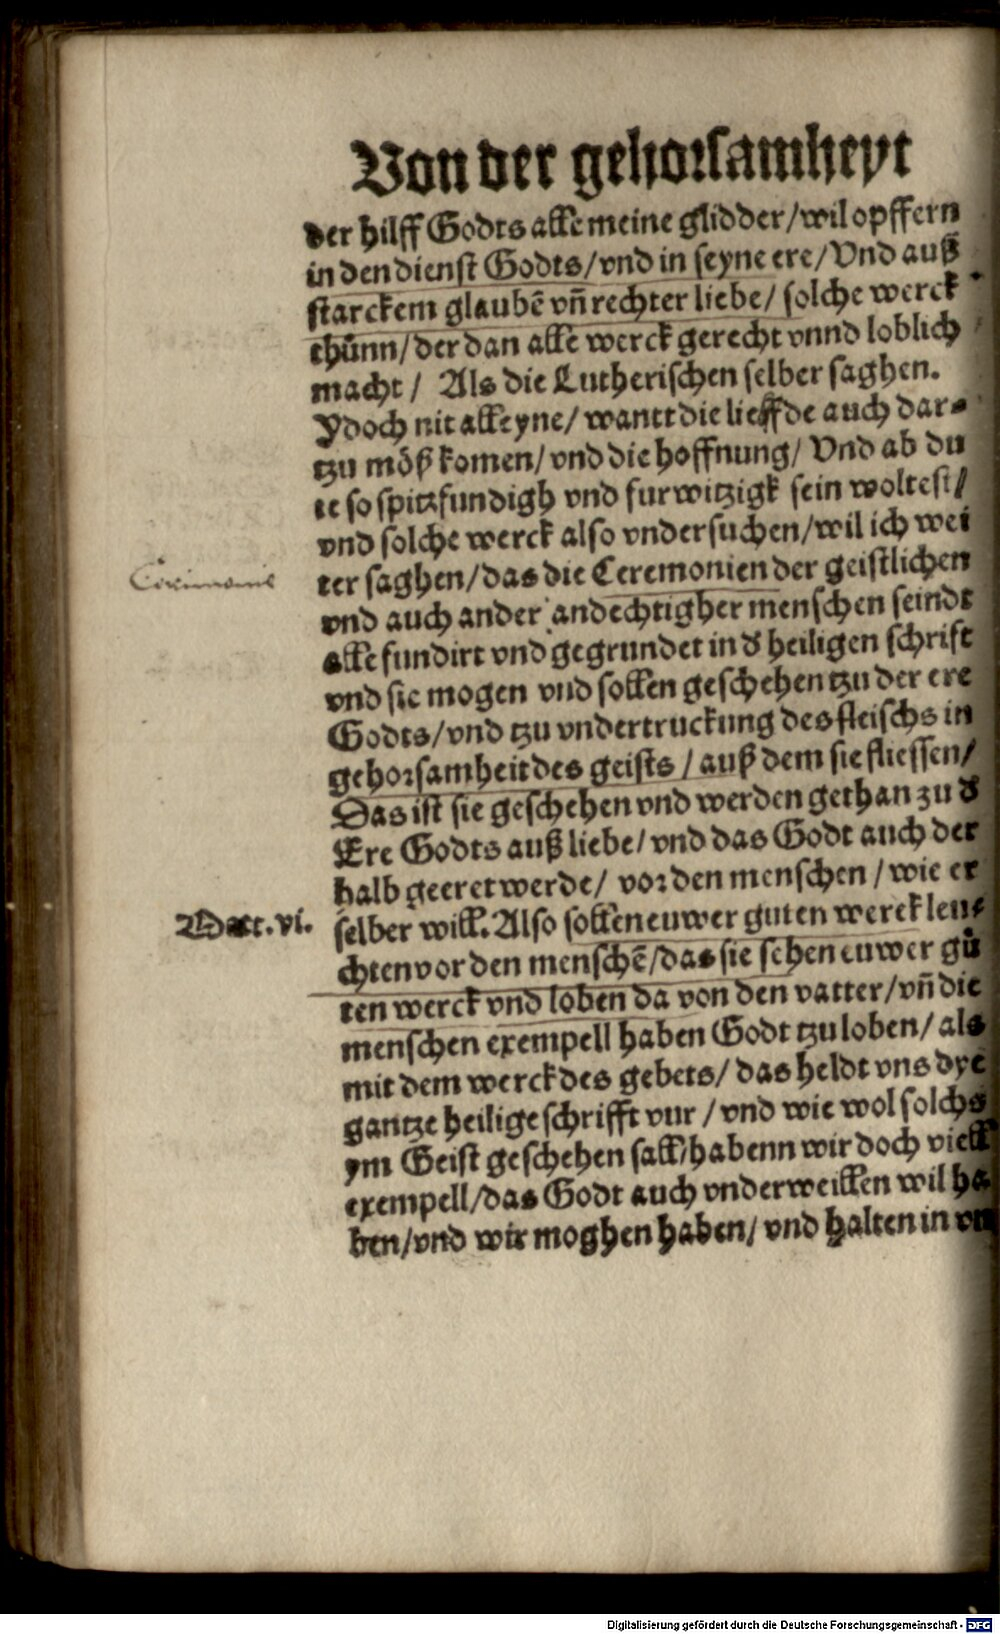 Von der gehorsamheyt
der hilff Godts alle meine glidder/wil opffern
in den dienst Godts/vnd in seyne ere/Vnd auß
starckem glaubẽ vñ rechter liebe/ solche werck
thůnn/der dan alle werck gerecht vnnd loblich
macht/ Als die Lutherischen selber saghen.
Ydoch nit alleyne/ wantt die lieffde auch dar-
tzu mòß komen/vnd die hoffnung/ Vnd ab du
ie so spitzfundigh vnd furwitzigk sein woltest/
vnd solche werck also vndersuchen/wil ich wei
Cerimonie
ter saghen/das die Ceremonien der geistlichen
vnd auch ander andechtigher menschen seindt
alle fundirt vnd gegrundet in d̕ heiligen schrift
vnd sie mogen vnd sollen geschehen tzu der ere
Godts/vnd tzu vndertruckung des fleischs in
gehorsamheit des geists/auß dem sie fliessen/
Das ist sie geschehen vnd werden gethan zu d̕
Ere Godts auß liebe/vnd das Godt auch der
halb geeret werde/ vor den menschen/wie er
Mat. vi.
selber will. Also sollen euwer guten werck leu-
chten vor den menschẽ/das sie sehen euwer gů
ten werck vnd loben da von den vatter/vñ die
menschen exempell haben Godt tzu loben/ als
mit dem werck des gebets/ das heldt vns dye
gantze heilige schrifft vur/vnd wie wol solchs
ym Geist geschehen sall/habenn wir doch viell
exempell/das Godt auch vnderweillen wil ha-
ben/vnd wir moghen haben/ vnd halten in vn
Digitalisierung gefördert durch die Deutsche Forschungsgemeinschaft - DFG